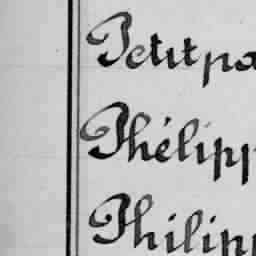 Petitpa
Phélipp
Philipp